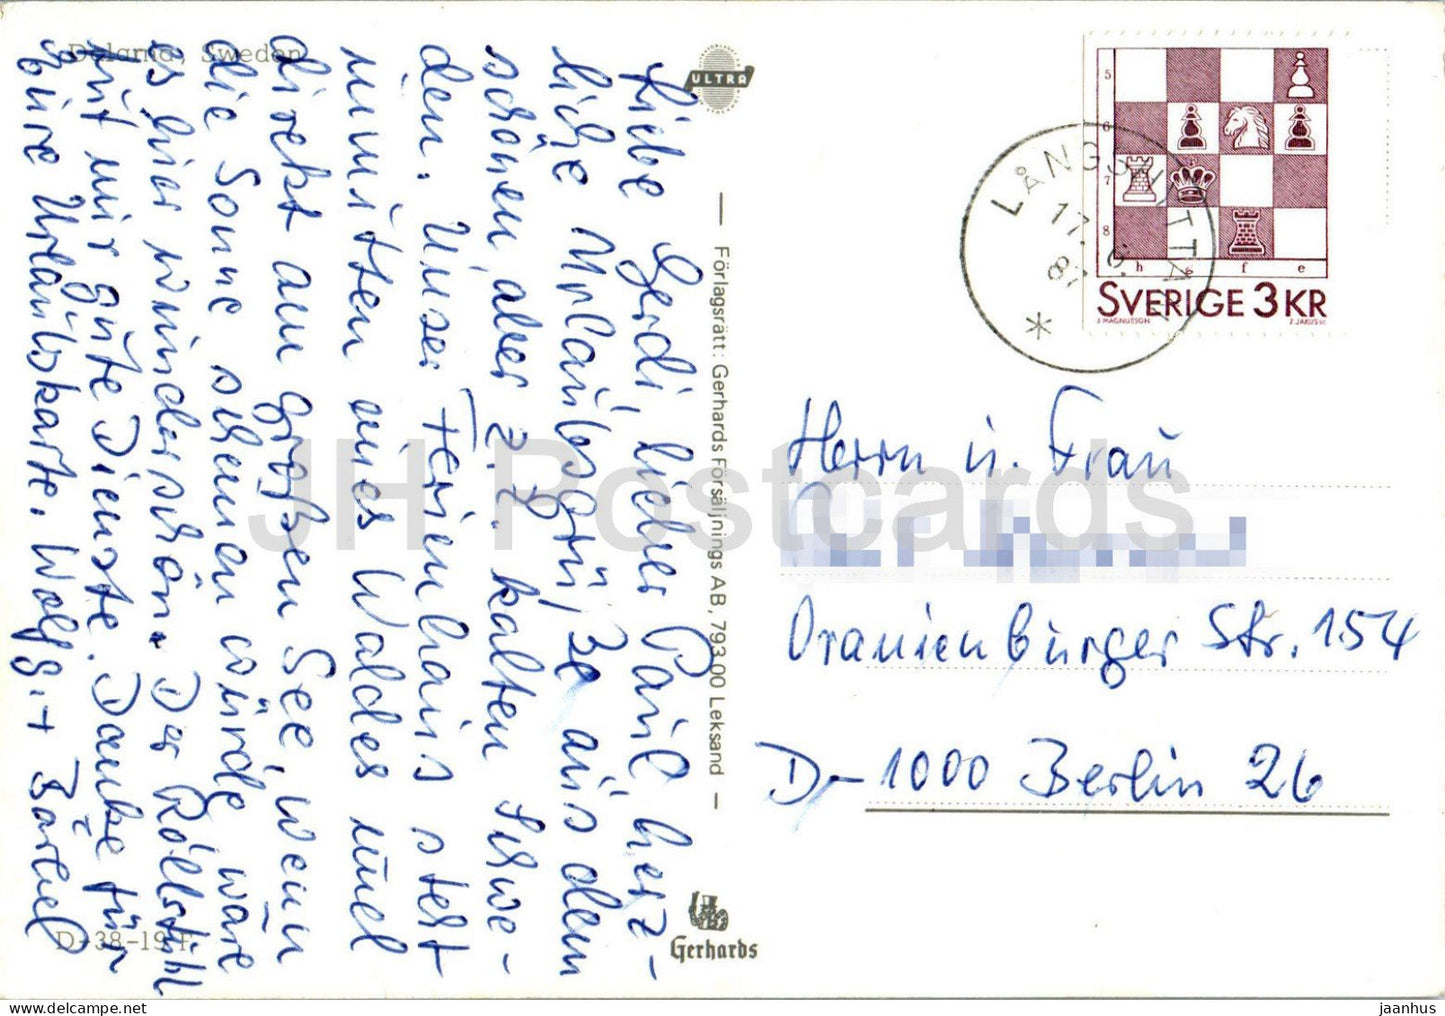 Dalarna, Sweden
Liebe Gerdi, lieber Paul, herz-
liche Urlaubsgrüße aus dem
schönen, aber z.Z. kalten Schwe-
den. Unser Ferienhaus steht
inmitten eines Waldes und
direkt am großen See, wenn
die Sonne scheinen würde, wäre
es hier wunderschön. Der Rollstuhl
tut mir gute Dienste. Danke für
Eure Urlaubskarte. Wolfg. + Bärbel
D-38-19-F
ULTRA
Förlagsrätt: Gerhards Försäljnings AB, 793 00 Leksand
Gerhards
5
6
7
8
h g f e
SVERIGE 3 KR
I. MAGNUSSON Z. JAKUS SC
LÅNGSHYTTAN
17. 6.
8
Herrn u. Frau
Oranienburger Str. 154
D-1000 Berlin 26
JH Postcards
jaanhus - https://jhpostcards.com